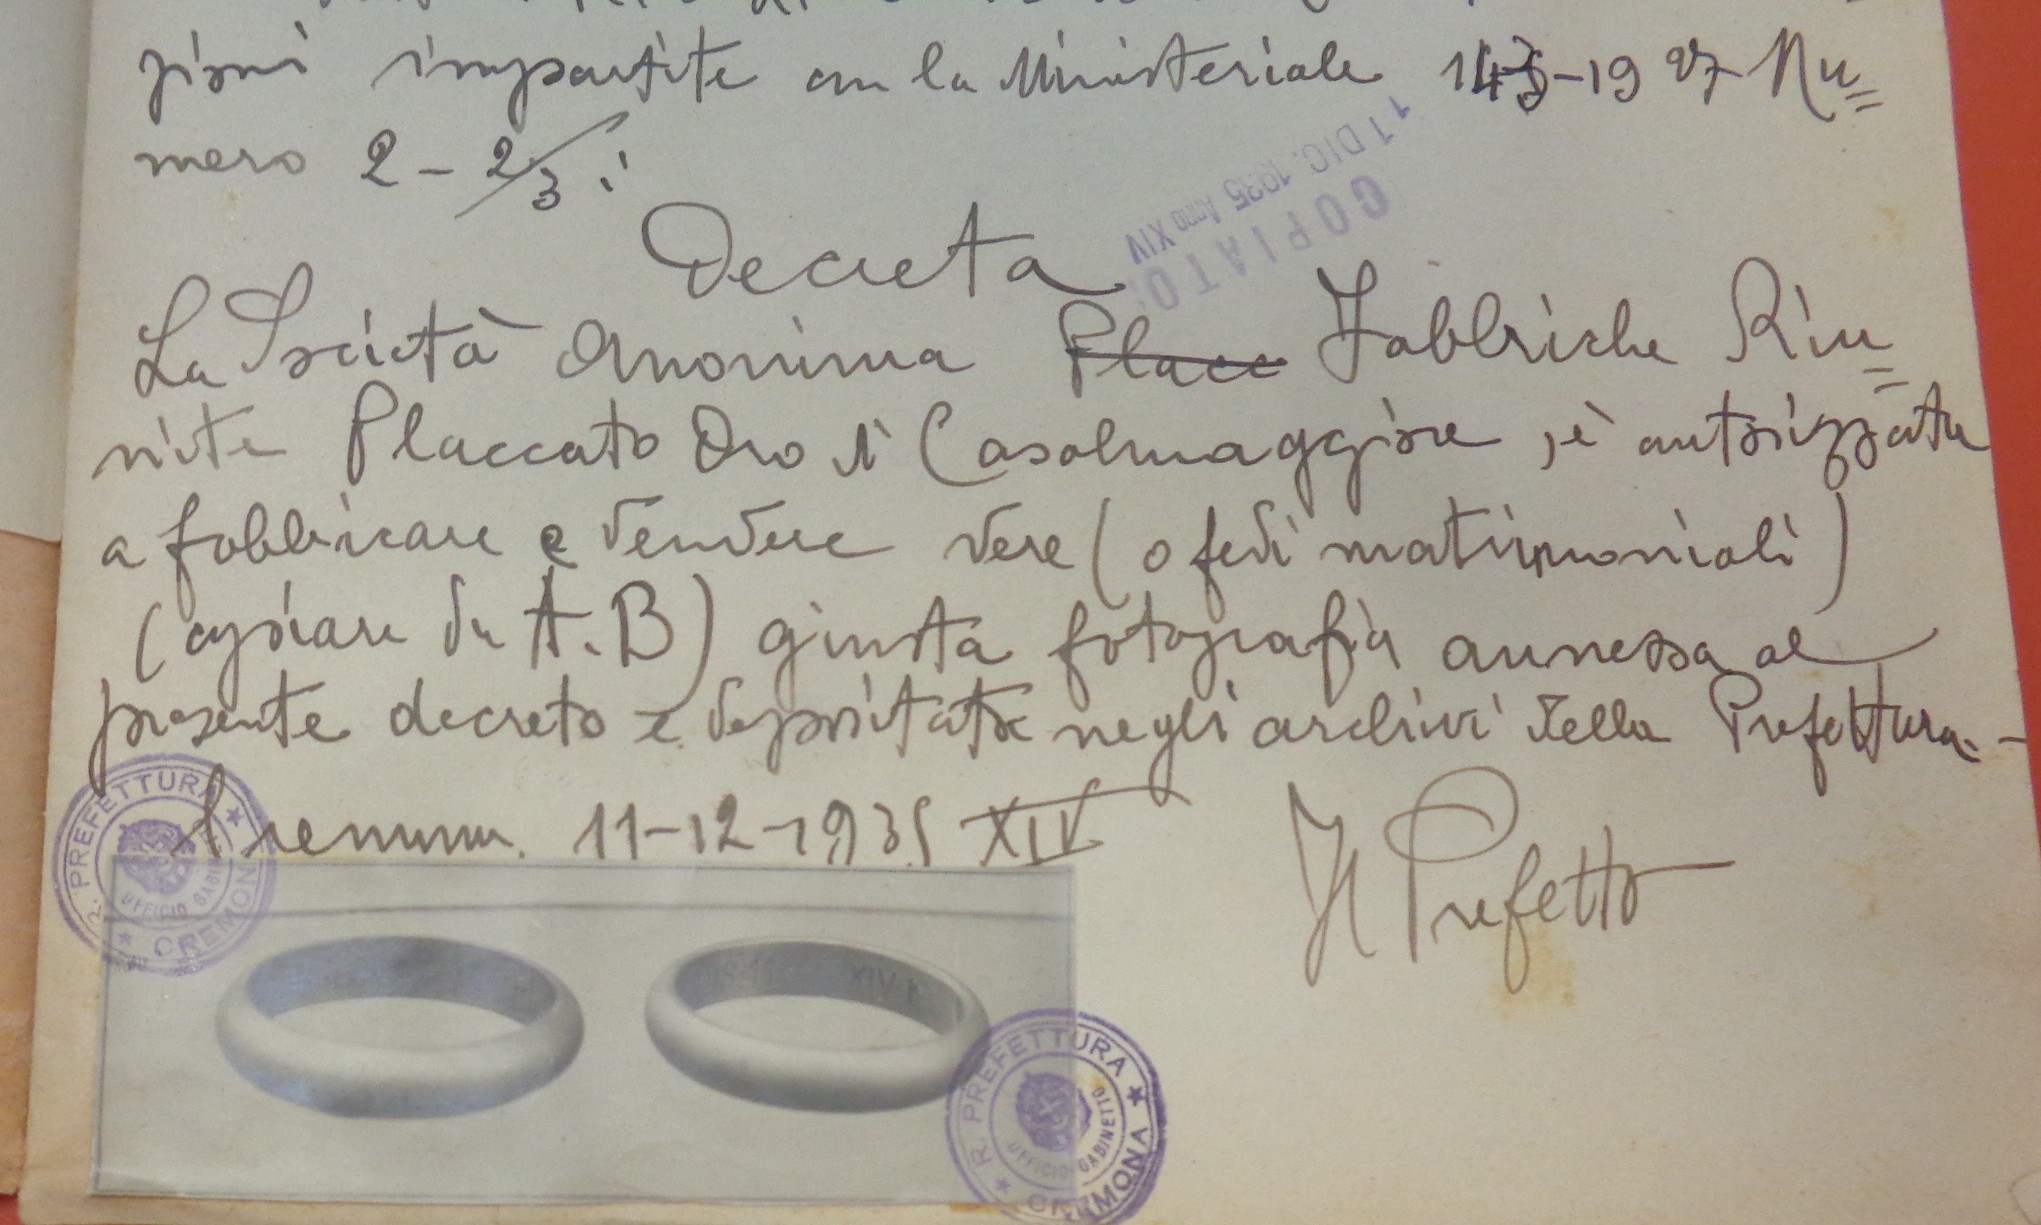 zioni impartite con la Ministeriale 1927 Nu=
mero 2 - 2/3 :
11 DIC. 1935 Anno XIV
COPIATO
Decreta
La Società Anonima Placc Fabbriche Riu=
nite Placcato Oro di Casalmaggiore, è autorizzata
a fabbricare e vendere vere (o fedi matrimoniali)
(copiare da A.B) giusta fotografia annessa al
presente decreto e depositata negli archivi della Prefettura.-
Cremona. 11-12-1935 XIV
Il Prefetto
R. PREFETTURA ★ CREMONA ★
UFFICIO GABINETTO
XIV
R. PREFETTURA ★ CREMONA ★
UFFICIO GABINETTO